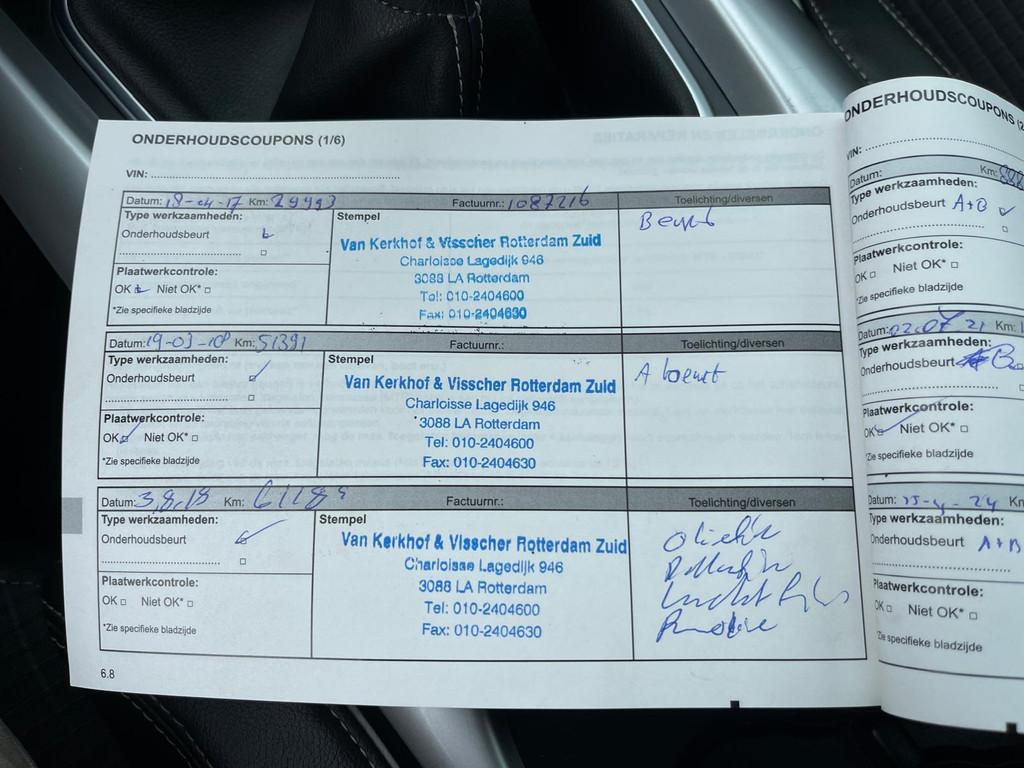 ONDERHOUDSCOUPONS (1/6)
VIN:
Datum: 18-04-17 Km: 29993 Factuurnr.: 1087216 Toelichting/diversen
Type werkzaamheden:
Onderhoudsbeurt
Plaatwerkcontrole:
OK Niet OK*
*Zie specifieke bladzijde
Stempel
Van Kerkhof & Visscher Rotterdam Zuid
Charloisse Lagedijk 946
3088 LA Rotterdam
Tel: 010-2404600
Fax: 010-2404630
Beurt
Datum: 19-03-18 Km: 51391 Factuurnr.: Toelichting/diversen
Type werkzaamheden:
Onderhoudsbeurt
Plaatwerkcontrole:
OK Niet OK*
*Zie specifieke bladzijde
Stempel
Van Kerkhof & Visscher Rotterdam Zuid
Charloisse Lagedijk 946
3088 LA Rotterdam
Tel: 010-2404600
Fax: 010-2404630
A beurt
Datum: 3,8,18 Km: Factuurnr.: Toelichting/diversen
Type werkzaamheden:
Onderhoudsbeurt
Plaatwerkcontrole:
OK Niet OK*
*Zie specifieke bladzijde
Stempel
Van Kerkhof & Visscher Rotterdam Zuid
Charloisse Lagedijk 946
3088 LA Rotterdam
Tel: 010-2404600
Fax: 010-2404630
6.8
ONDERHOUDSCOUPONS
VIN:
Datum: Km:
Type werkzaamheden:
Onderhoudsbeurt A+B
Plaatwerkcontrole:
OK Niet OK*
*Zie specifieke bladzijde
Datum: 02.07 21 Km:
Type werkzaamheden:
Onderhoudsbeurt
Plaatwerkcontrole:
OK Niet OK*
*Zie specifieke bladzijde
Datum: 24 Km
Type werkzaamheden:
Onderhoudsbeurt A+B
Plaatwerkcontrole:
OK Niet OK*
*Zie specifieke bladzijde